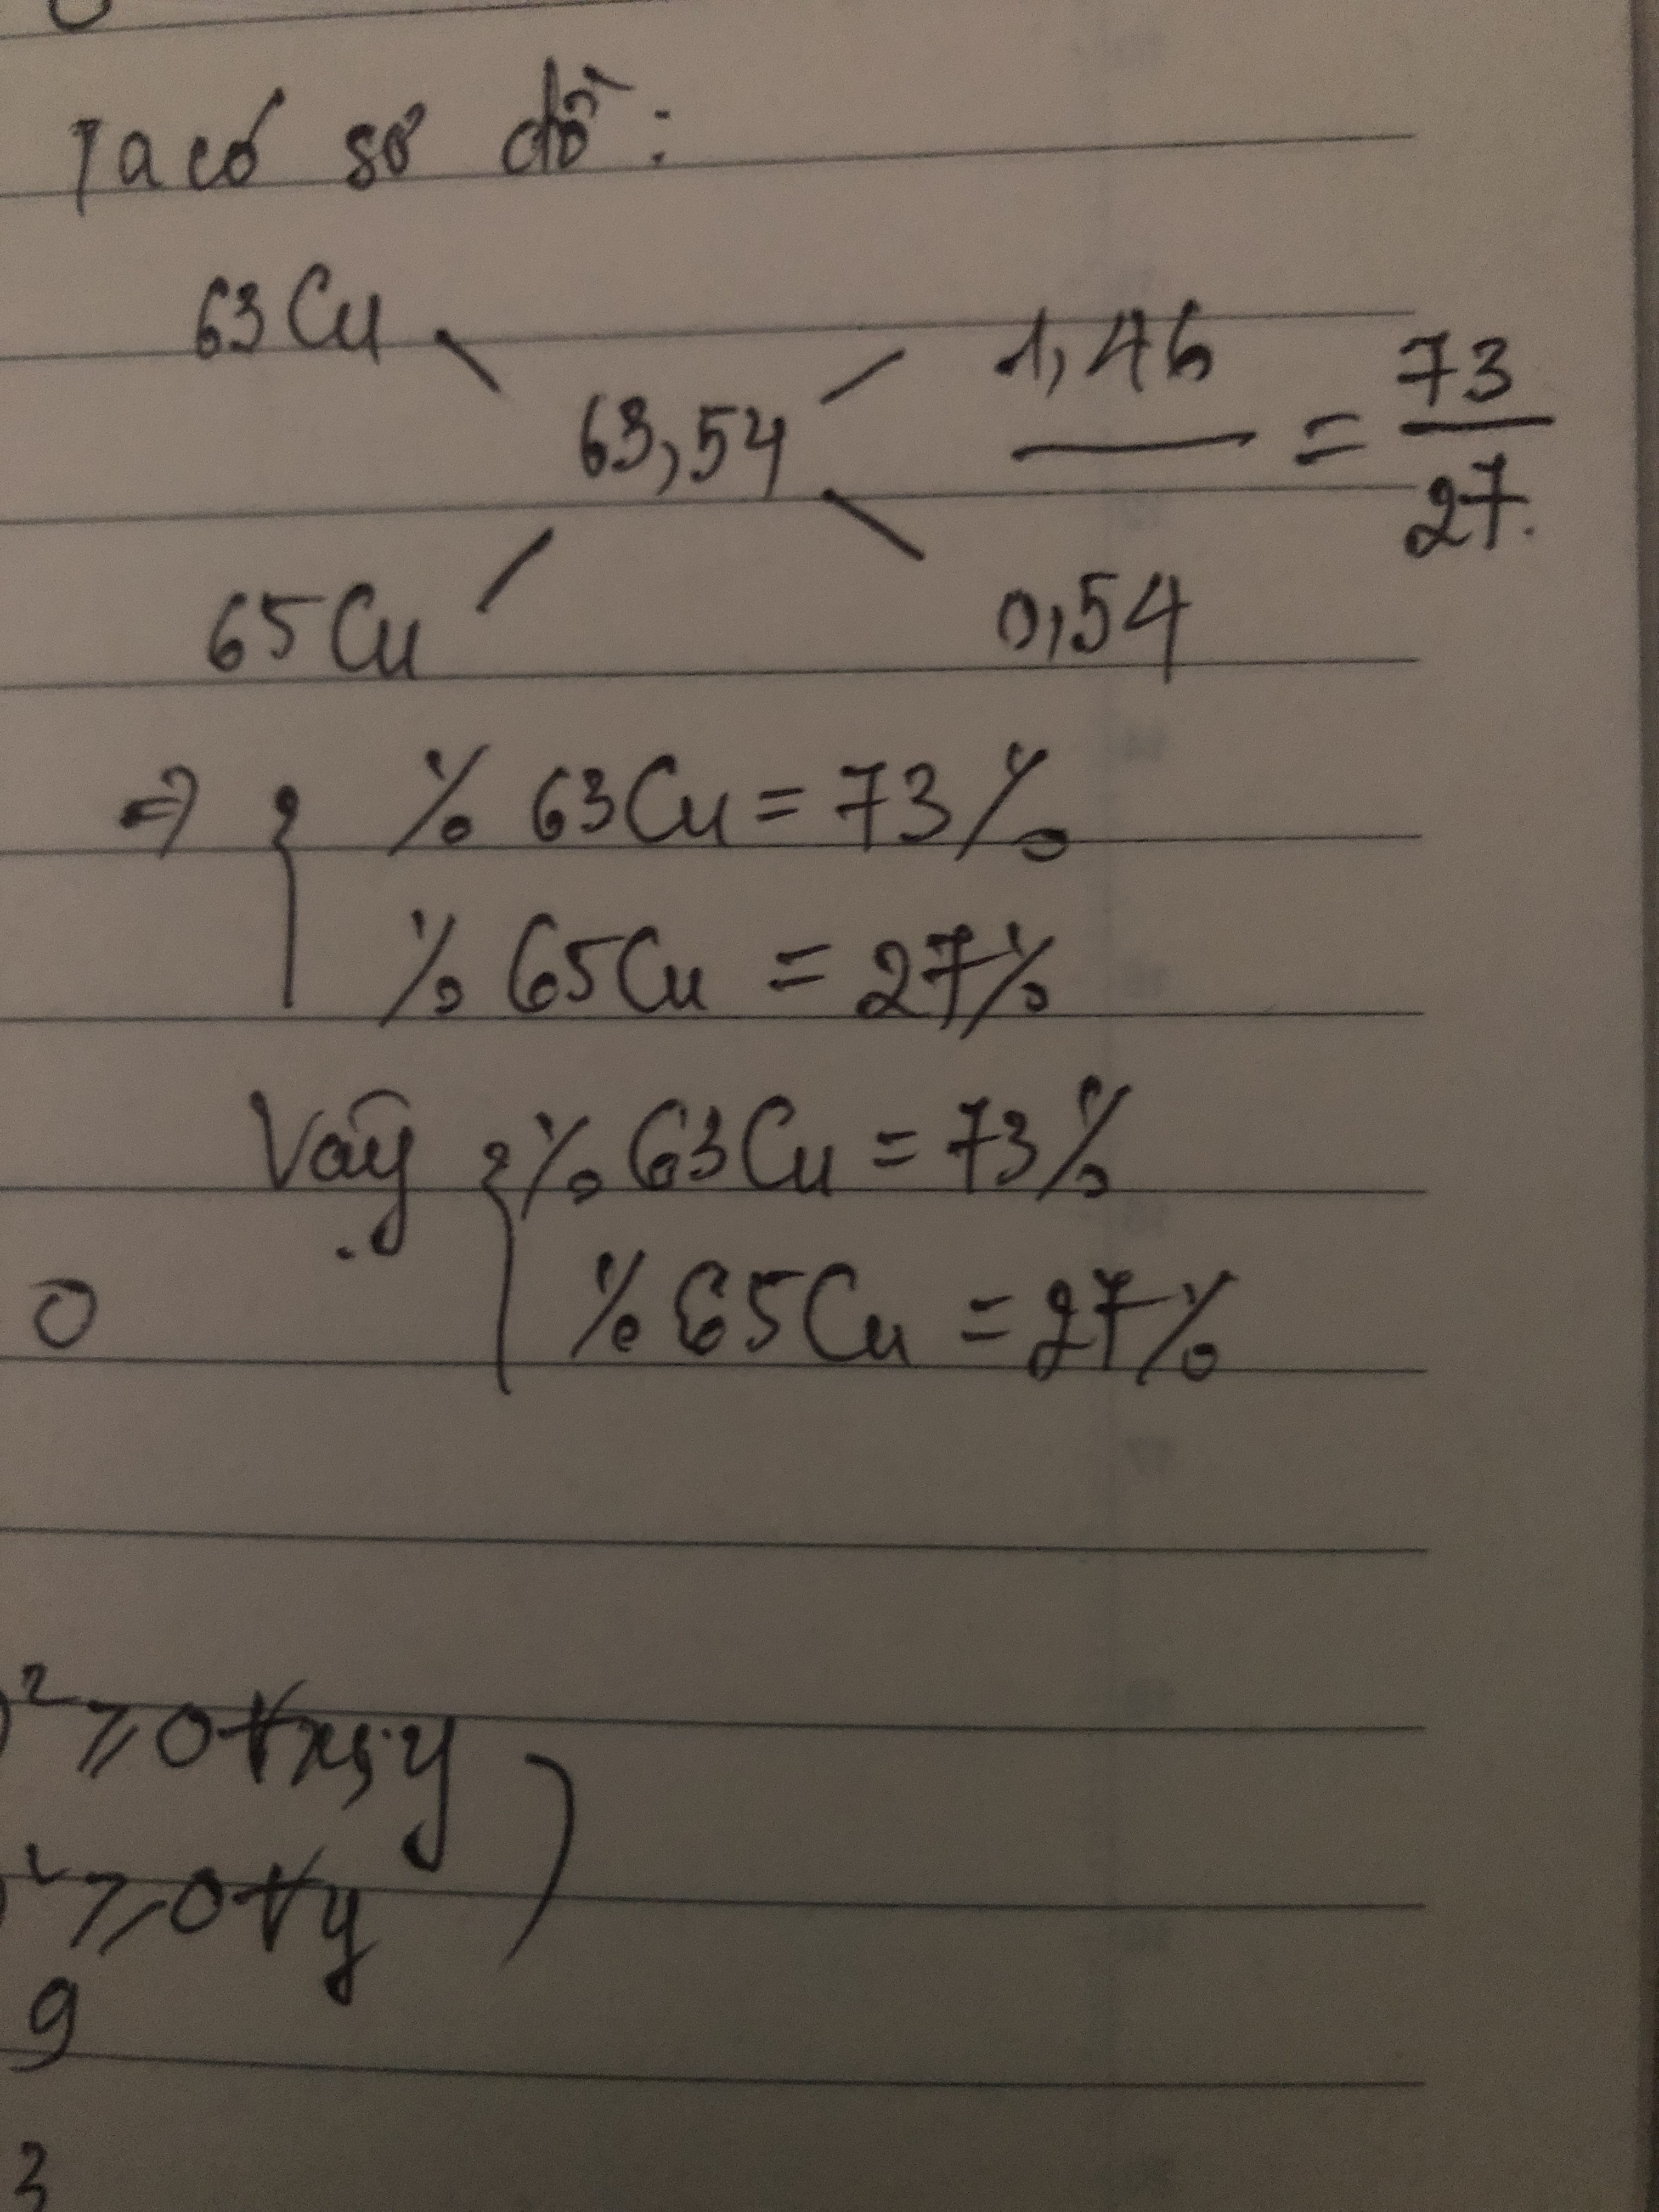 Ta có sơ đồ:
63Cu 1,46 73
63,54 =
65Cu 0,54 27.
=> { % 63Cu = 73%
% 65Cu = 27%
Vậy { % 63Cu = 73%
0 % 65Cu = 27%
)² ≥ 0 ∀x,y
)² ≥ 0 ∀y )
9
3